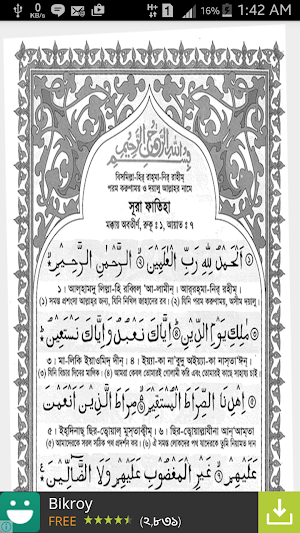 0 KB/s H+ 16% 1:42 AM
بِسْمِ اللهِ الرَّحْمٰنِ الرَّحِيْمِ
বিসমিল্লা-হির্ রাহ্মা-নির্ রাহীম্
পরম করুণাময় ও দয়ালু আল্লাহর নামে
সূরা ফাতিহা
মক্কায় অবতীর্ণ, রুকূ : ১, আয়াত : ৭
اَلْحَمْدُ لِلّٰهِ رَبِّ الْعٰلَمِيْنَ الرَّحْمٰنِ الرَّحِيْمِ
১। আল্হামদু লিল্লা-হি রব্বিল্ 'আ-লামীন্। আর্রহ্মা-নির্ রহীম্।
(১) সমস্ত প্রশংসা আল্লাহর জন্য, যিনি নিখিল জাহানের রব। (২) যিনি পরম করুণাময়, অসীম দয়ালু।
مٰلِكِ يَوْمِ الدِّيْنِ اِيَّاكَ نَعْبُدُ وَاِيَّاكَ نَسْتَعِيْنُ
৩। মা-লিকি ইয়াওমিদ্ দীন্। ৪। ইয়্যা-কা না'বুদু অইয়্যা-কা নাস্তা'ঈন্।
(৩) যিনি বিচার দিনের মালিক। (৪) আমরা কেবল তোমারই গোলামী করি এবং তোমারই কাছে সাহায্য চাই
اِهْدِنَا الصِّرَاطَ الْمُسْتَقِيْمَ صِرَاطَ الَّذِيْنَ اَنْعَمْتَ
৫। ইহ্দিনাছ্ ছির-ত্বোয়াল্ মুস্তাক্বীম্। ৬। ছির-ত্বোয়াল্লাযীনা আন্'আম্তা
(৫) আমাদেরকে সরল সঠিক পথ প্রদর্শন কর। (৬) সে সমস্ত লোকদের পথ যাদেরকে তুমি নিয়ামত দান
عَلَيْهِمْ غَيْرِ الْمَغْضُوْبِ عَلَيْهِمْ وَلَا الضَّآلِّيْنَ
Bikroy
FREE (২,৮৩১)